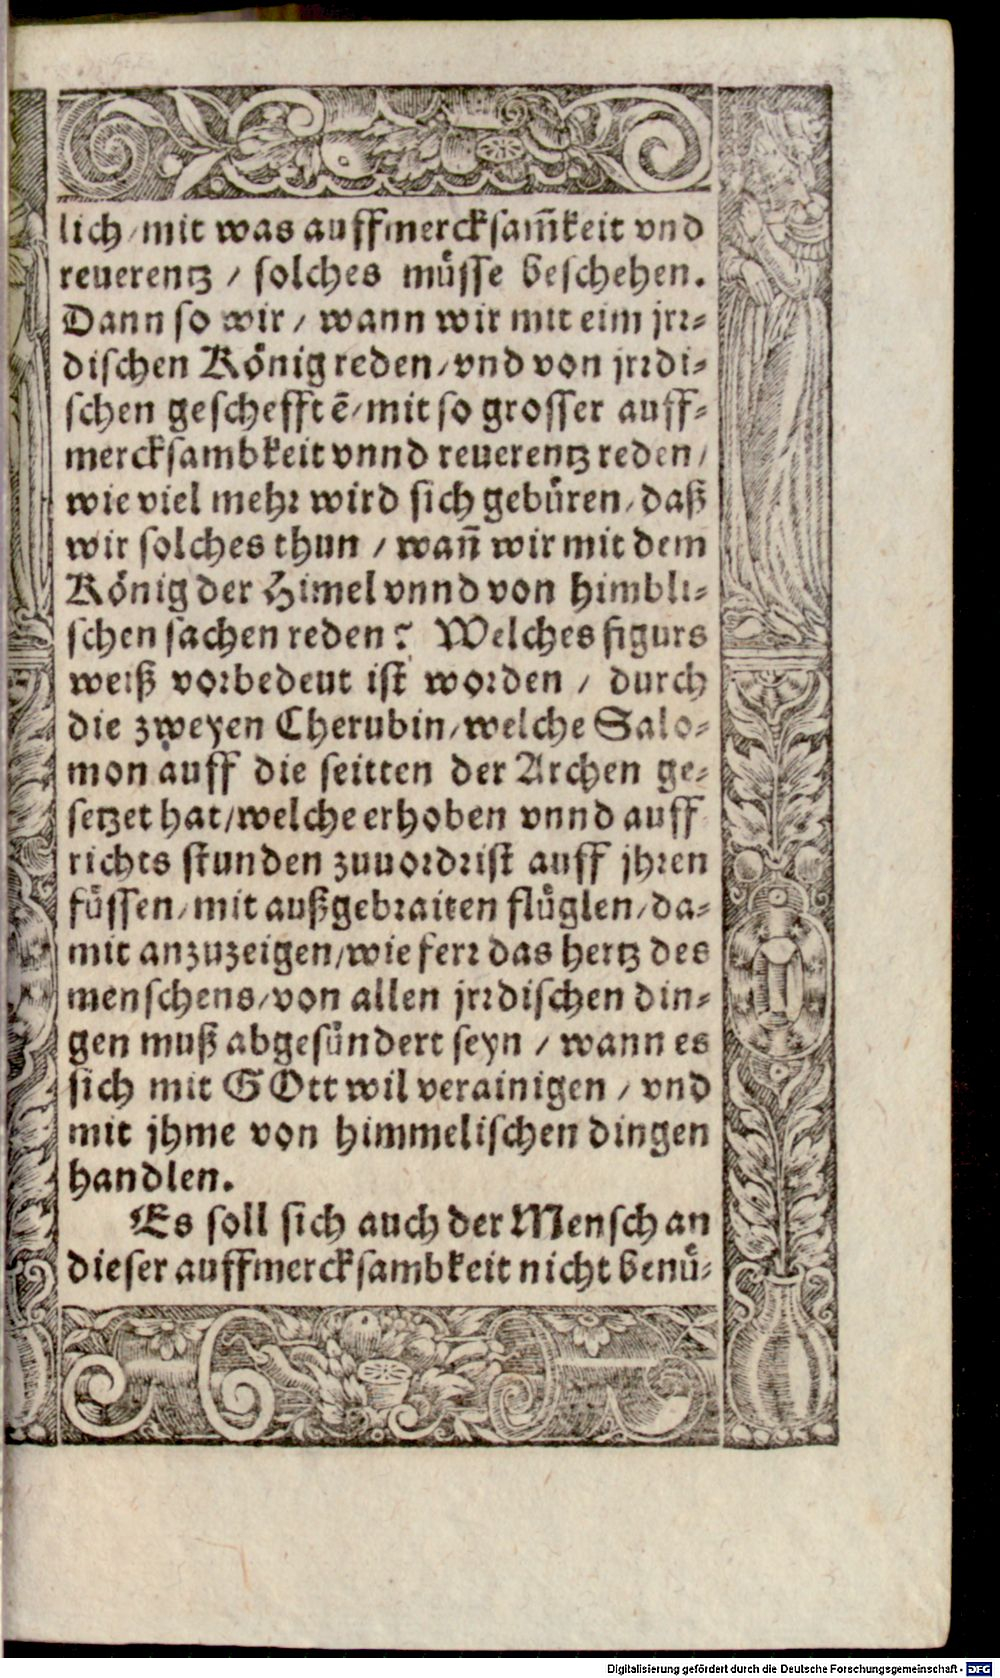 lich/mit was auffmercksam̃keit vnd
reuerentz / solches müsse beschehen.
Dann so wir / wann wir mit eim jrr-
dischen König reden/vnd von jrrdi-
schen geschefftē/mit so grosser auff-
mercksambkeit vnnd reuerentz reden/
wie viel mehr wird sich gebüren/daß
wir solches thun / wañ wir mit dem
König der Himel vnnd von himbli-
schen sachen reden? Welches figurs
weiß vorbedeut ist worden / durch
die zweyen Cherubin/welche Salo-
mon auff die seitten der Archen ge-
setzet hat/welche erhoben vnnd auff
richts stunden zuuordrist auff jhren
füssen/mit außgebraiten flüglen/da-
mit anzuzeigen/wie ferr das hertz des
menschens/von allen jrrdischen din-
gen muß abgesündert seyn / wann es
sich mit GOtt wil verainigen / vnd
mit jhme von himmelischen dingen
handlen.
Es soll sich auch der Mensch an
dieser auffmercksambkeit nicht benü-
Digitalisierung gefördert durch die Deutsche Forschungsgemeinschaft - DFG